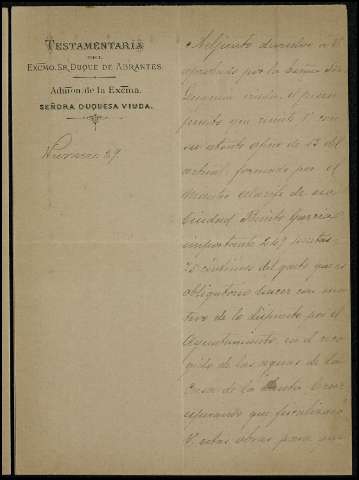 TESTAMENTARIA
DEL
EXCMO. SR. DUQUE DE ABRANTES.
Admon. de la Excma.
SEÑORA DUQUESA VIUDA.
Adjunto devuelvo a V.
aprobado por la Señora
Duquesa viuda, el presu
puesto que remite V. con
su atento oficio de 13 del
actual, formado por el
Maestro alarife de esa
Ciudad Benito Garcia
importante 249 pesetas
75 centimos del gasto que es
obligatorio hacer con mo
tivo de lo dispuesto por el
Ayuntamiento, en el reco
gido de las aguas de la
Casa de la
esperando que
V. estas obras para que